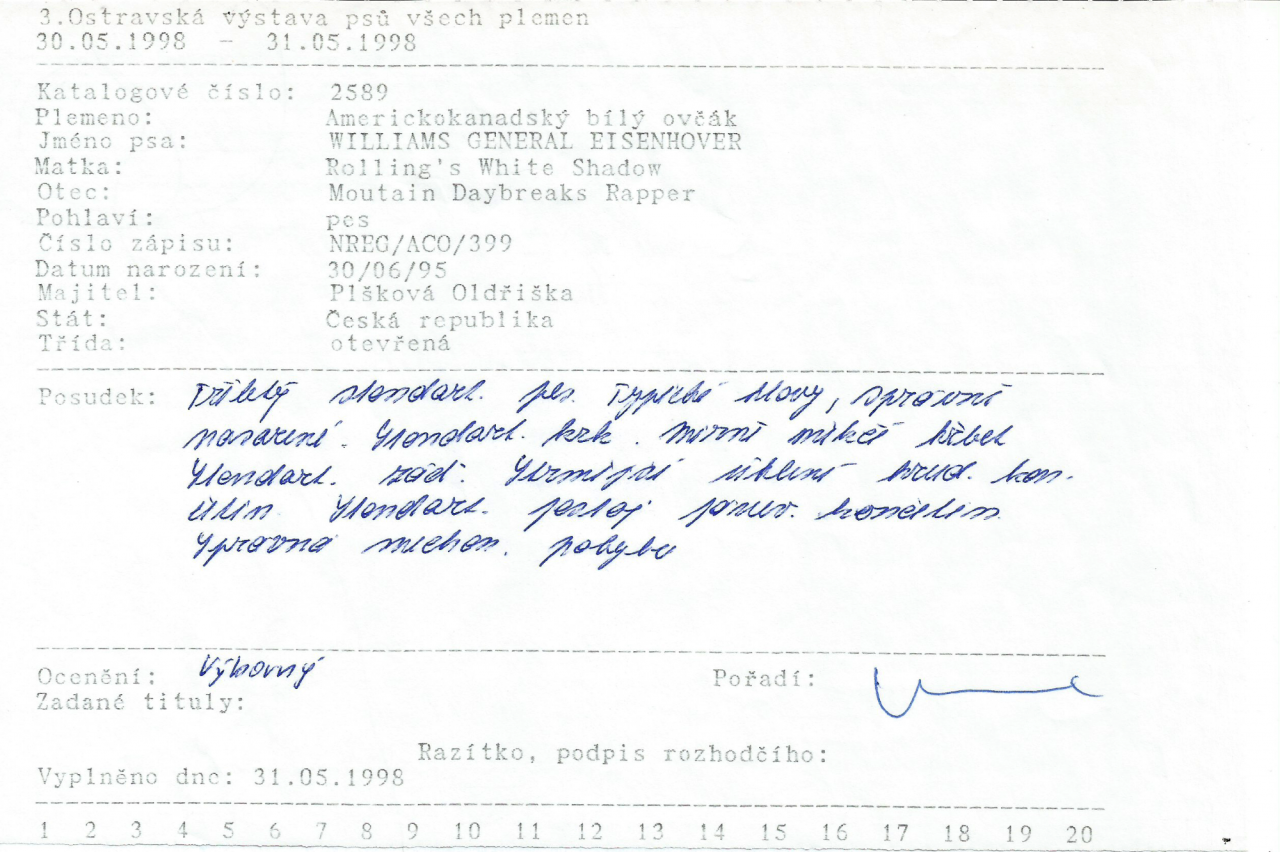 3.Ostravská výstava psů všech plemen
30.05.1998 - 31.05.1998
Katalogové číslo: 2589
Plemeno: Americkokanadský bílý ovčák
Jméno psa: WILLIAMS GENERAL EISENHOVER
Matka: Rolling's White Shadow
Otec: Moutain Daybreaks Rapper
Pohlaví: pes
Číslo zápisu: NREG/ACO/399
Datum narození: 30/06/95
Majitel: Plšková Oldřiška
Stát: Česká republika
Třída: otevřená
Posudek: Tříletý standart. pes. Typické hlavy, správně
nasazené. Standart. krk. mírně měkčí hřbet
Standart. zád. Strmější úhlení hrud. kon.
Standart. postoj pánev. končetin.
Správná mechan. pohybu
Ocenění: Výborný Pořadí:
Zadané tituly:
Razítko, podpis rozhodčího:
Vyplněno dne: 31.05.1998
1 2 3 4 5 6 7 8 9 10 11 12 13 14 15 16 17 18 19 20